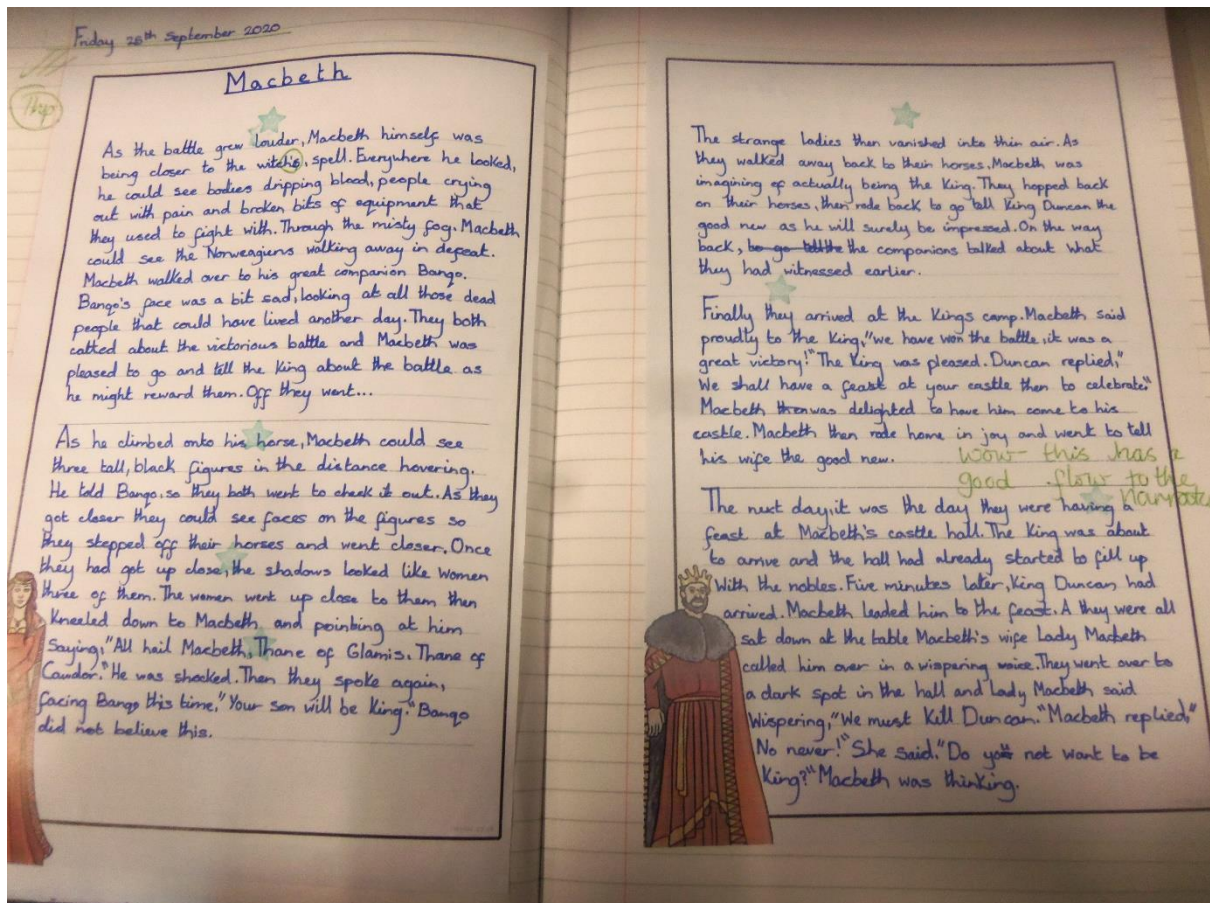 Friday 25th September 2020
Macbeth
As the battle grew louder, Macbeth himself was
being closer to the witch's, spell. Everywhere he looked,
he could see bodies dripping blood, people crying
out with pain and broken bits of equipment that
they used to fight with. Through the misty fog. Macbeth
could see the Norweagiens walking away in defeat.
Macbeth walked over to his great companion Banqo.
Banqo's face was a bit sad, looking at all those dead
people that could have lived another day. They both
catked about the victorious battle and Macbeth was
pleased to go and tell the King about the battle as
he might reward them. Off they went...
As he climbed onto his horse, Macbeth could see
three tall, black figures in the distance hovering.
He told Banqo, so they both went to check it out. As they
got closer they could see faces on the figures so
they stepped off their horses and went closer. Once
they had got up close, the shadows looked like women
three of them. The women went up close to them then
kneeled down to Macbeth and pointing at him
saying, "All hail Macbeth, Thane of Glamis. Thane of
Cawdor." He was shocked. Then they spoke again,
facing Banqo this time," Your son will be King." Banqo
did not believe this.
The strange ladies then vanished into thin air. As
they walked away back to their horses, Macbeth was
imagining of actually being the King. They hopped back
on their horses, then rode back to go tell King Duncan the
good new as he will surely be impressed. On the way
back, to go tell the the companions talked about what
they had witnessed earlier.
Finally they arrived at the Kings camp. Macbeth said
proudly to the King, "we have won the battle, it was a
great victory!" The King was pleased. Duncan replied,"
We shall have a feast at your castle then to celebrate."
Macbeth then was delighted to have him come to his
castle. Macbeth then rode home in joy and went to tell
his wife the good new.
wow- this has a
good flow to the
The next day, it was the day they were having a
feast at Macbeth's castle hall. The King was about
to arrive and the hall had already started to fill up
with the nobles. Five minutes later, King Duncan had
arrived. Macbeth leaded him to the feast. A they were all
sat down at the table Macbeth's wife Lady Macbeth
called him over in a wispering voice. They went over to
a dark spot in the hall and Lady Macbeth said
Wispering, "We must Kill Duncan." Macbeth replied,"
No never!" She said." Do you not want to be
King?" Macbeth was thinking.